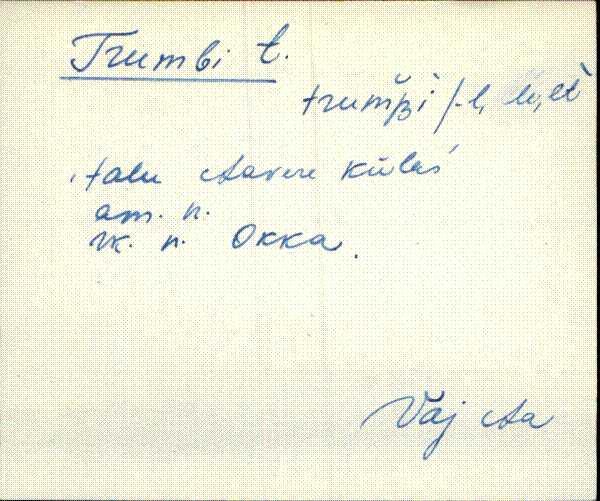 Trumbi t.
trumʙ̆i /-l, le, lt
talu Aavere külas
am. n.
vk. n. Okka.
Vaj Aa